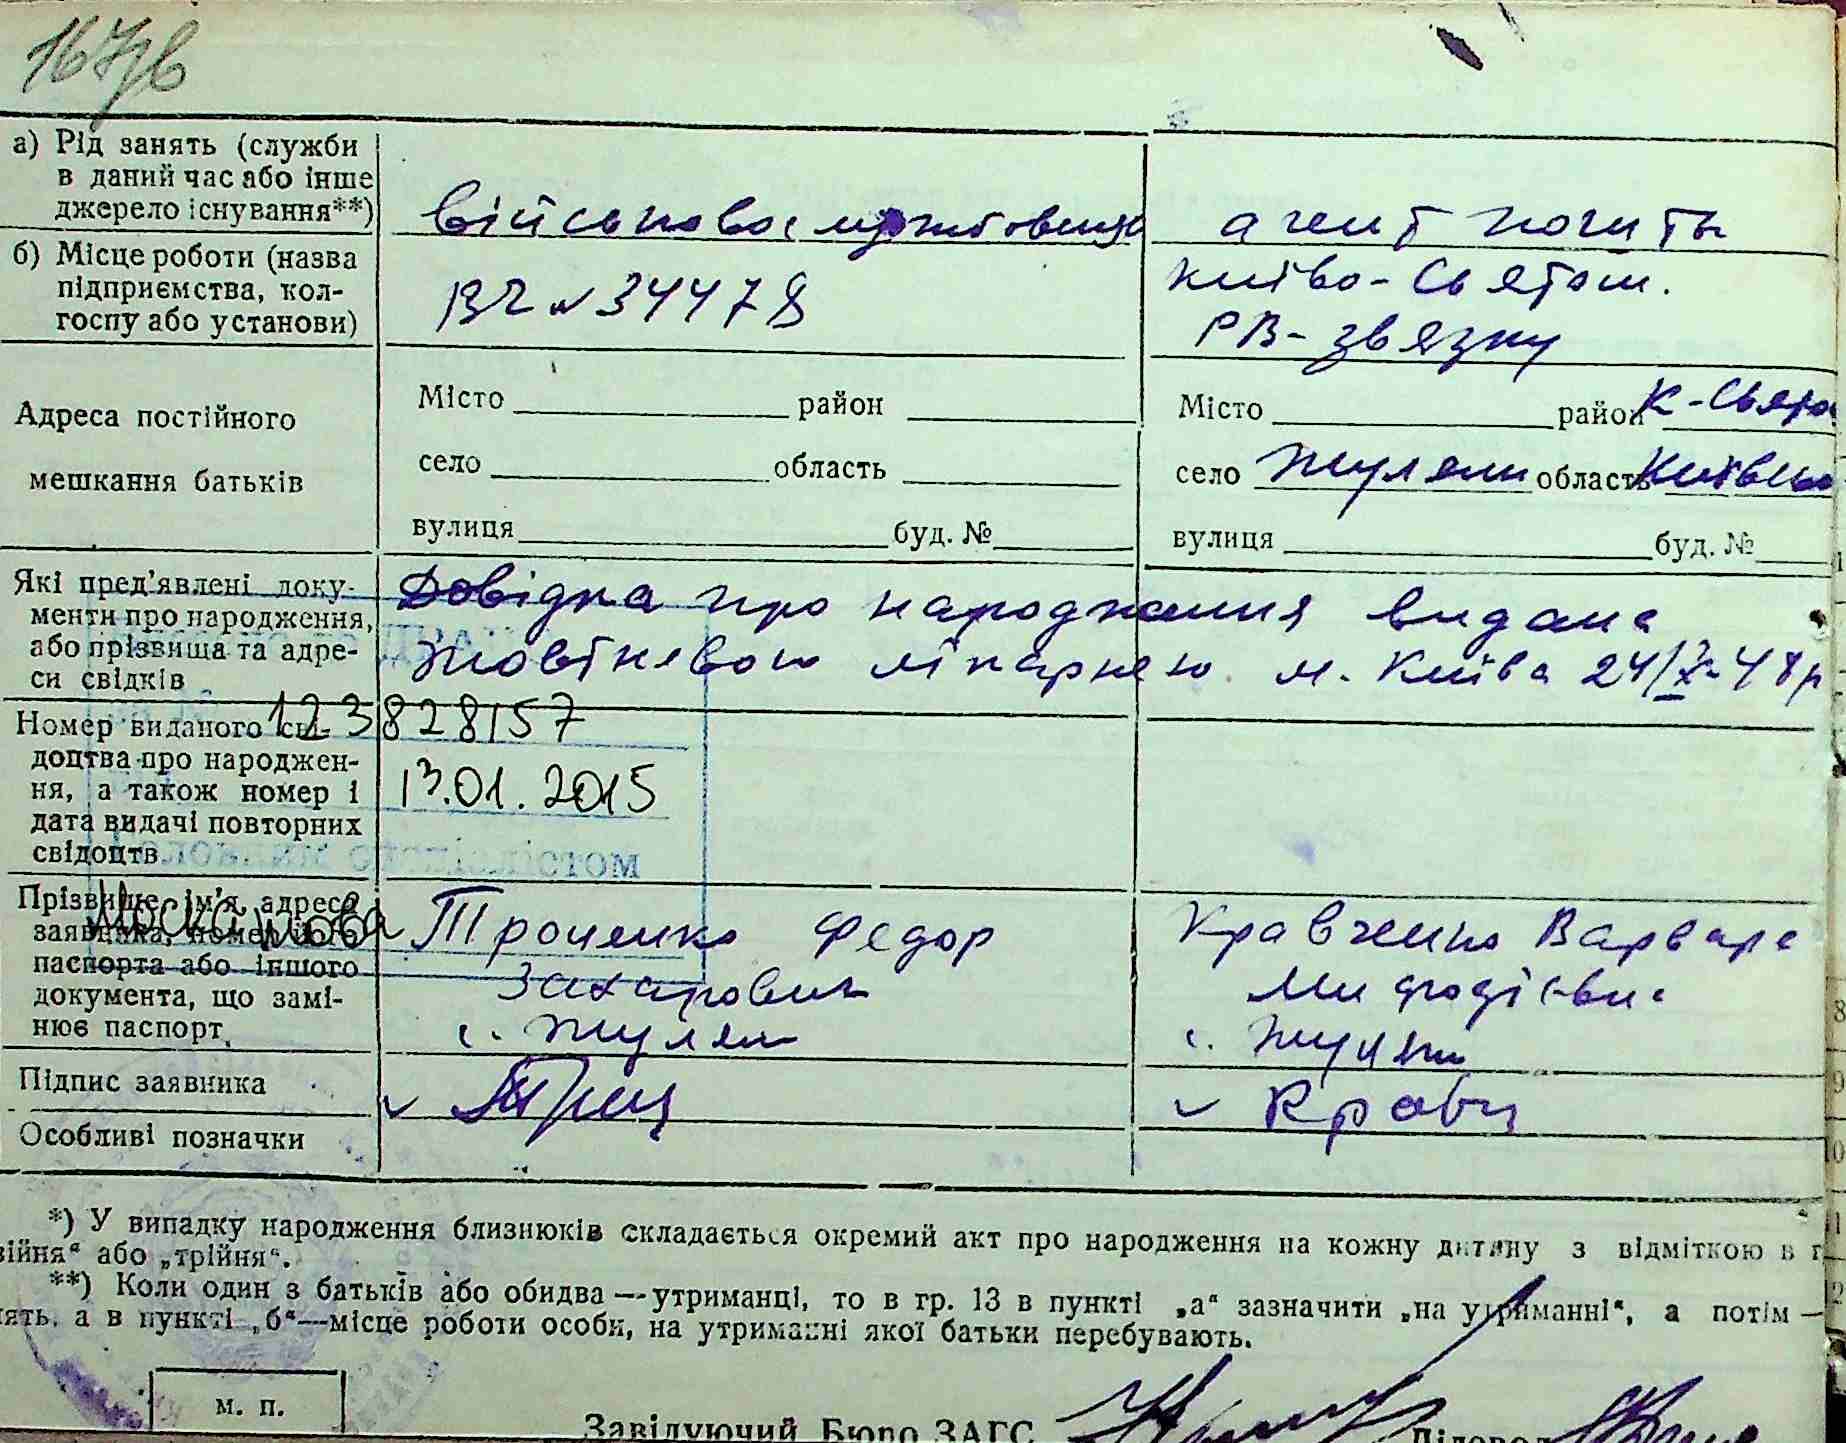 а) Рід занять (служби
в даний час або інше
джерело існування**)
військовослужбовець
агент почты
б) Місце роботи (назва
підприємства, кол-
госпу або установи)
ВЧ № 34478
Київо-Святош.
РВ-звязку
Адреса постійного
мешкання батьків
Місто район
село область
вулиця буд. №
Місто район К-Свято
село Жуляни область Київсь
вулиця буд. №
Які пред'явлені доку-
менти про народження,
або прізвища та адре-
си свідків
Довідка про народження видана
Жовтневою лікарнею м. Київа 24/X-48р
Номер виданого сві-
доцтва про народжен-
ня, а також номер і
дата видачі повторних
свідоцтв
123 828157
13.01.2015
Прізвище, ім'я, адреса
заявника, номер його
паспорта або іншого
документа, що замі-
нює паспорт
Троценко Федор
Захарович
с. Жуляни
Кравченко Варвара
Мифодіївна
с. Жуляни
Підпис заявника
Кравч
Особливі позначки
*) У випадку народження близнюків складається окремий акт про народження на кожну дитину з відміткою в г
ійня“ або „трійня“.
**) Коли один з батьків або обидва — утриманці, то в гр. 13 в пункті „а“ зазначити „на утриманні“, а потім —
ять, а в пункті „б“—місце роботи особи, на утриманні якої батьки перебувають.
м. п.
Завідуючий Бюро ЗАГС
Діловод